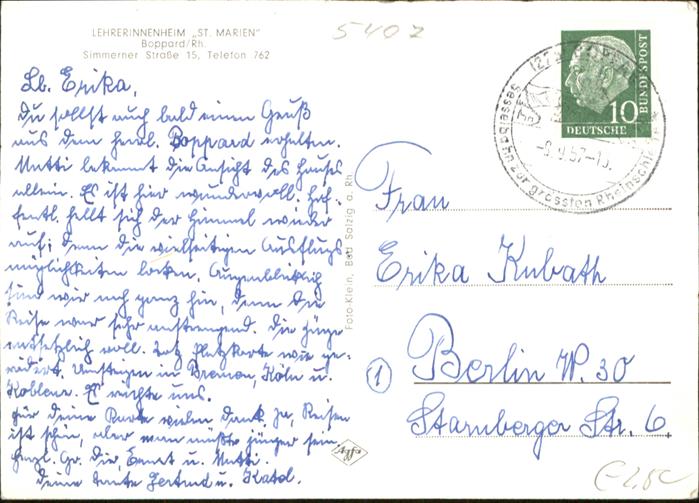 LEHRERINNENHEIM „ST. MARIEN"
Boppard/Rh.
Simmerner Straße 15, Telefon 762
5402
Lb. Erika,
Du sollst auch bald einen Gruß
aus dem herrl. Boppard erhalten.
Mutti bekommt die Ansicht des Hauses
allein. Es ist hier wundervoll. Hof-
fentl. hellt sich der Himmel wieder
auf; denn die vielseitigen Ausflugs
möglichkeiten locken. Augenblicklich
sind wir noch ganz hin, denn die
Reise war sehr anstrengend. Die Züge
entsetzlich voll. Trotz Platzkarte wie ge-
rädert. Umsteigen in Bremen, Köln u.
Koblenz. Es reichte uns.
Für Deine Karte vielen Dank. Ja, Reisen
ist schön, aber man müßte jünger sein.
Herzl. Gr. Dir, Ernst u. Mutti.
Deine Tante Gertrud u.
Foto-Klein, Bad Salzig a. Rh.
Agfa
10
DEUTSCHE
BUNDESPOST
Sesselbahn zur grössten Rheinschleife
57
Frau
Erika Kubath
1
Berlin W. 30
Starnberger Str. 6.